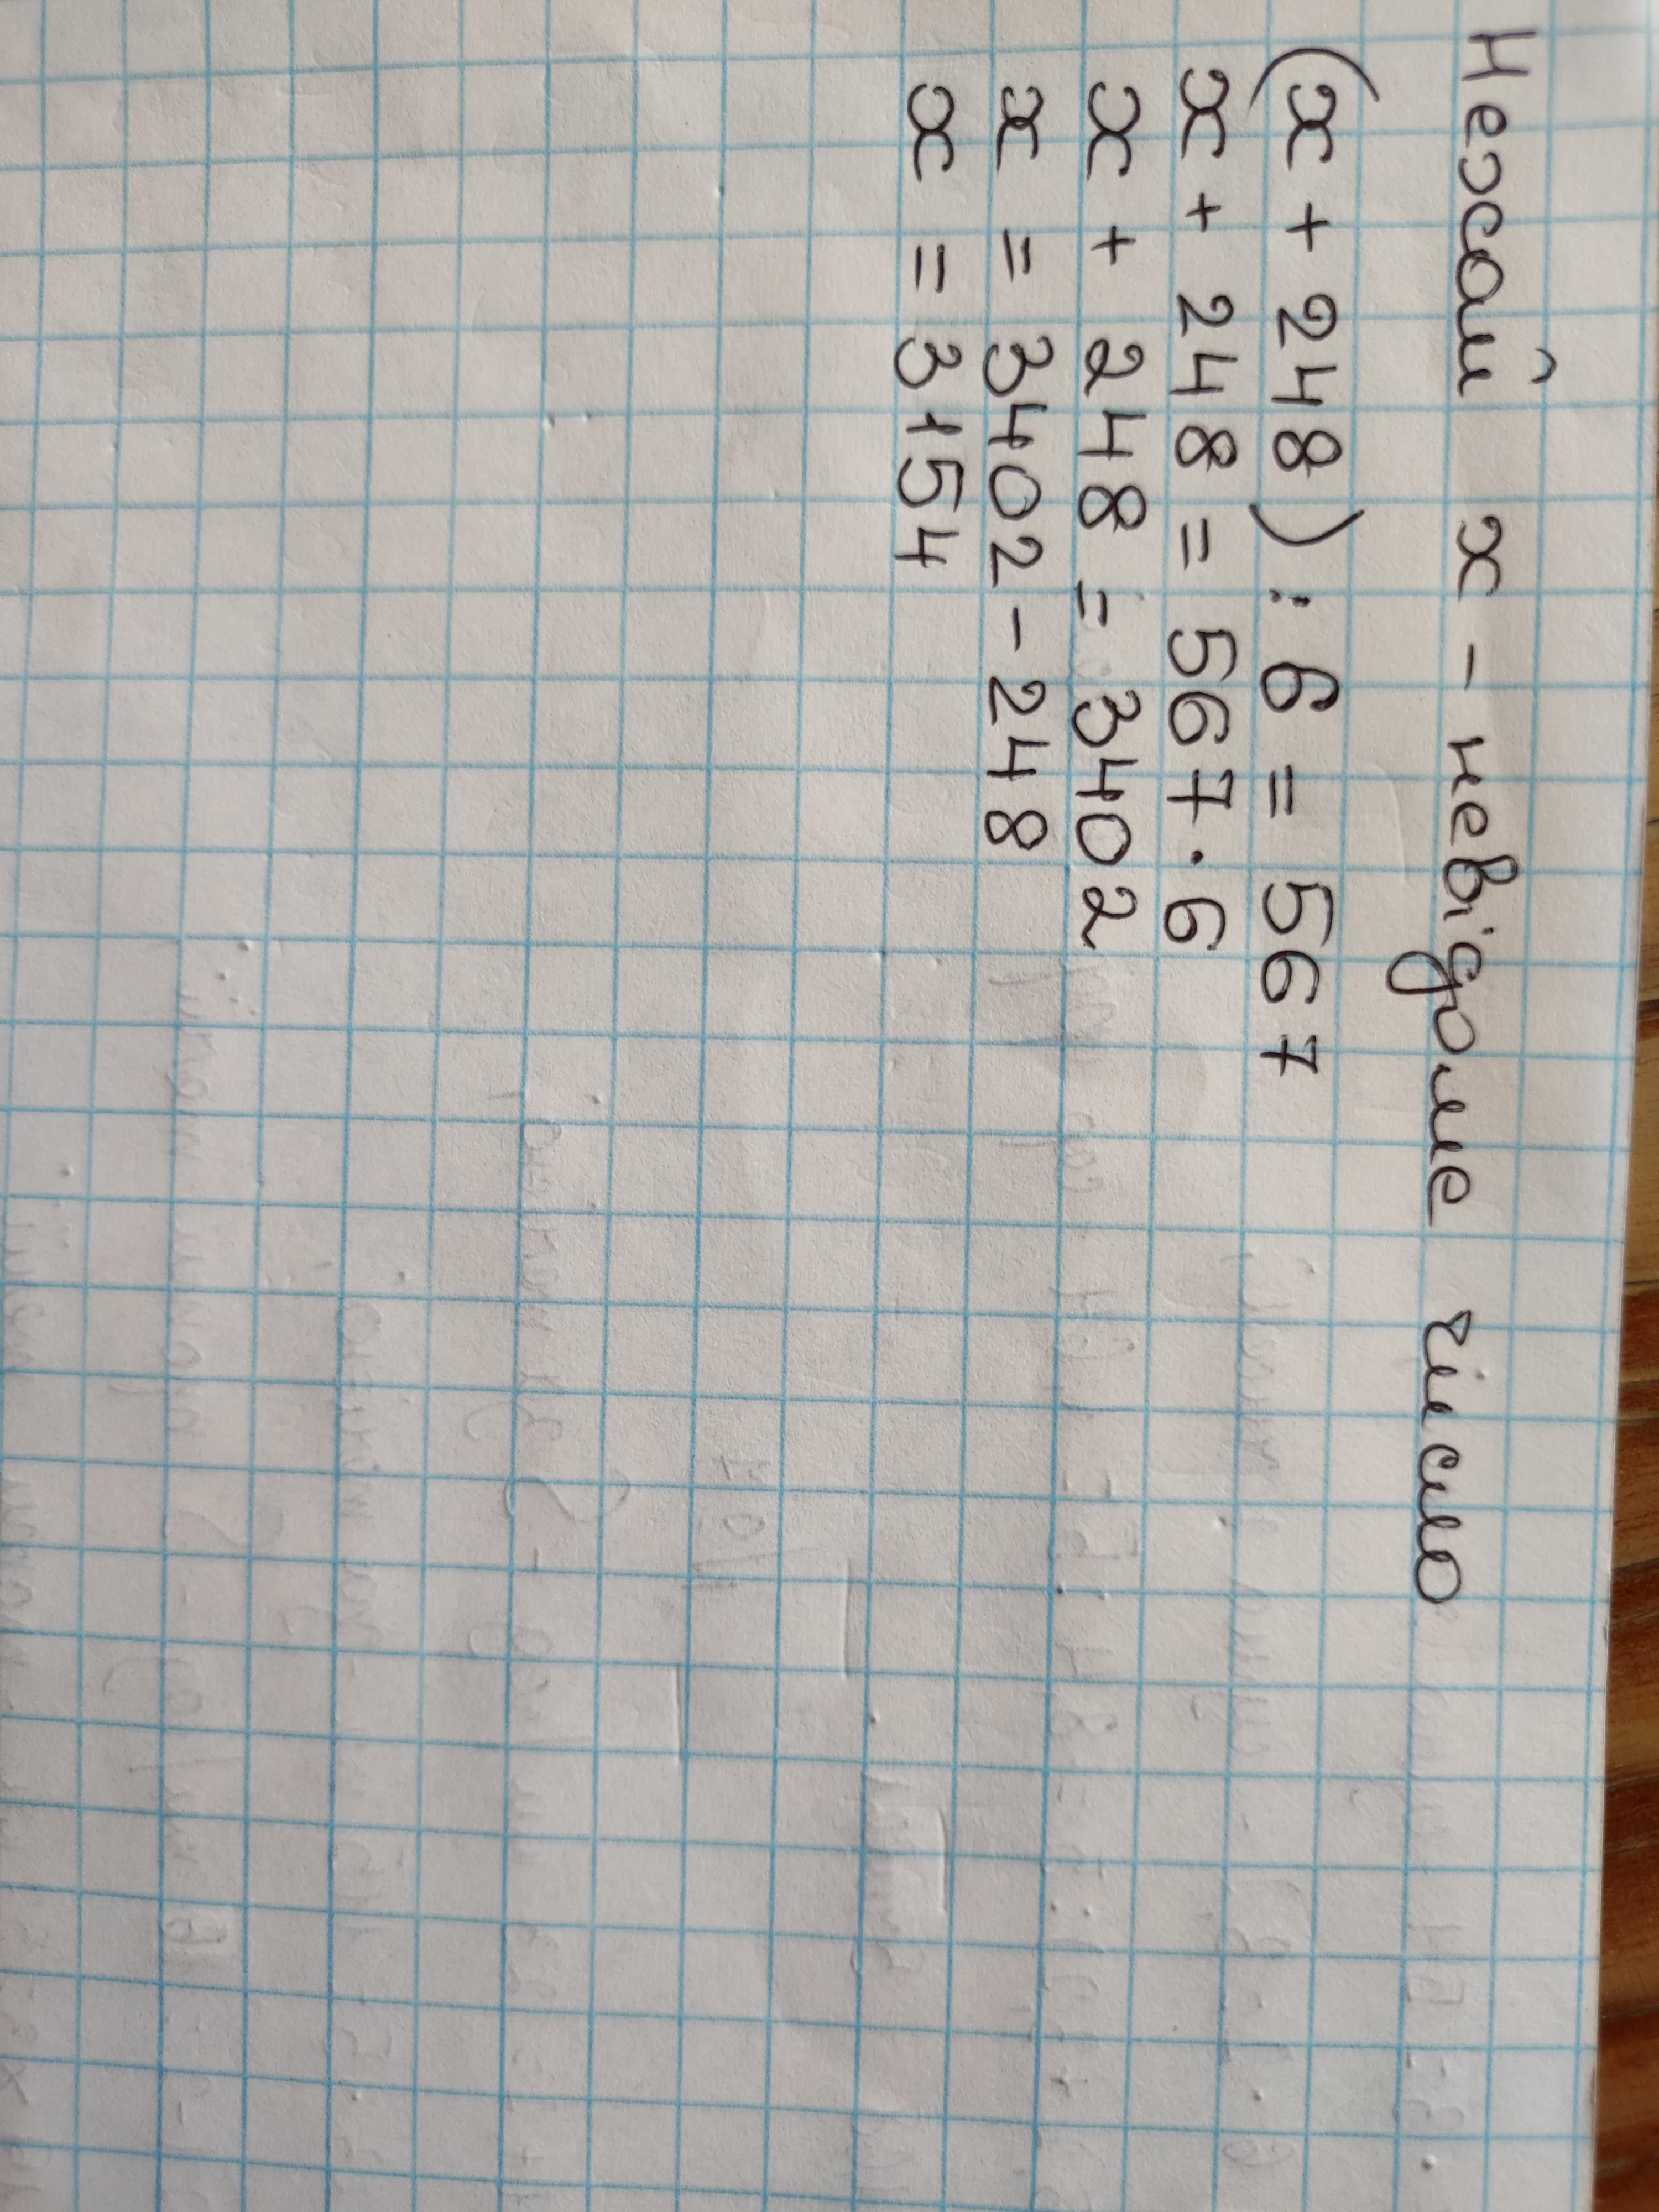 Нехай x - невідоме число
(x + 248) : 6 = 567
x + 248 = 567 · 6
x + 248 = 3402
x = 3402 - 248
x = 3154